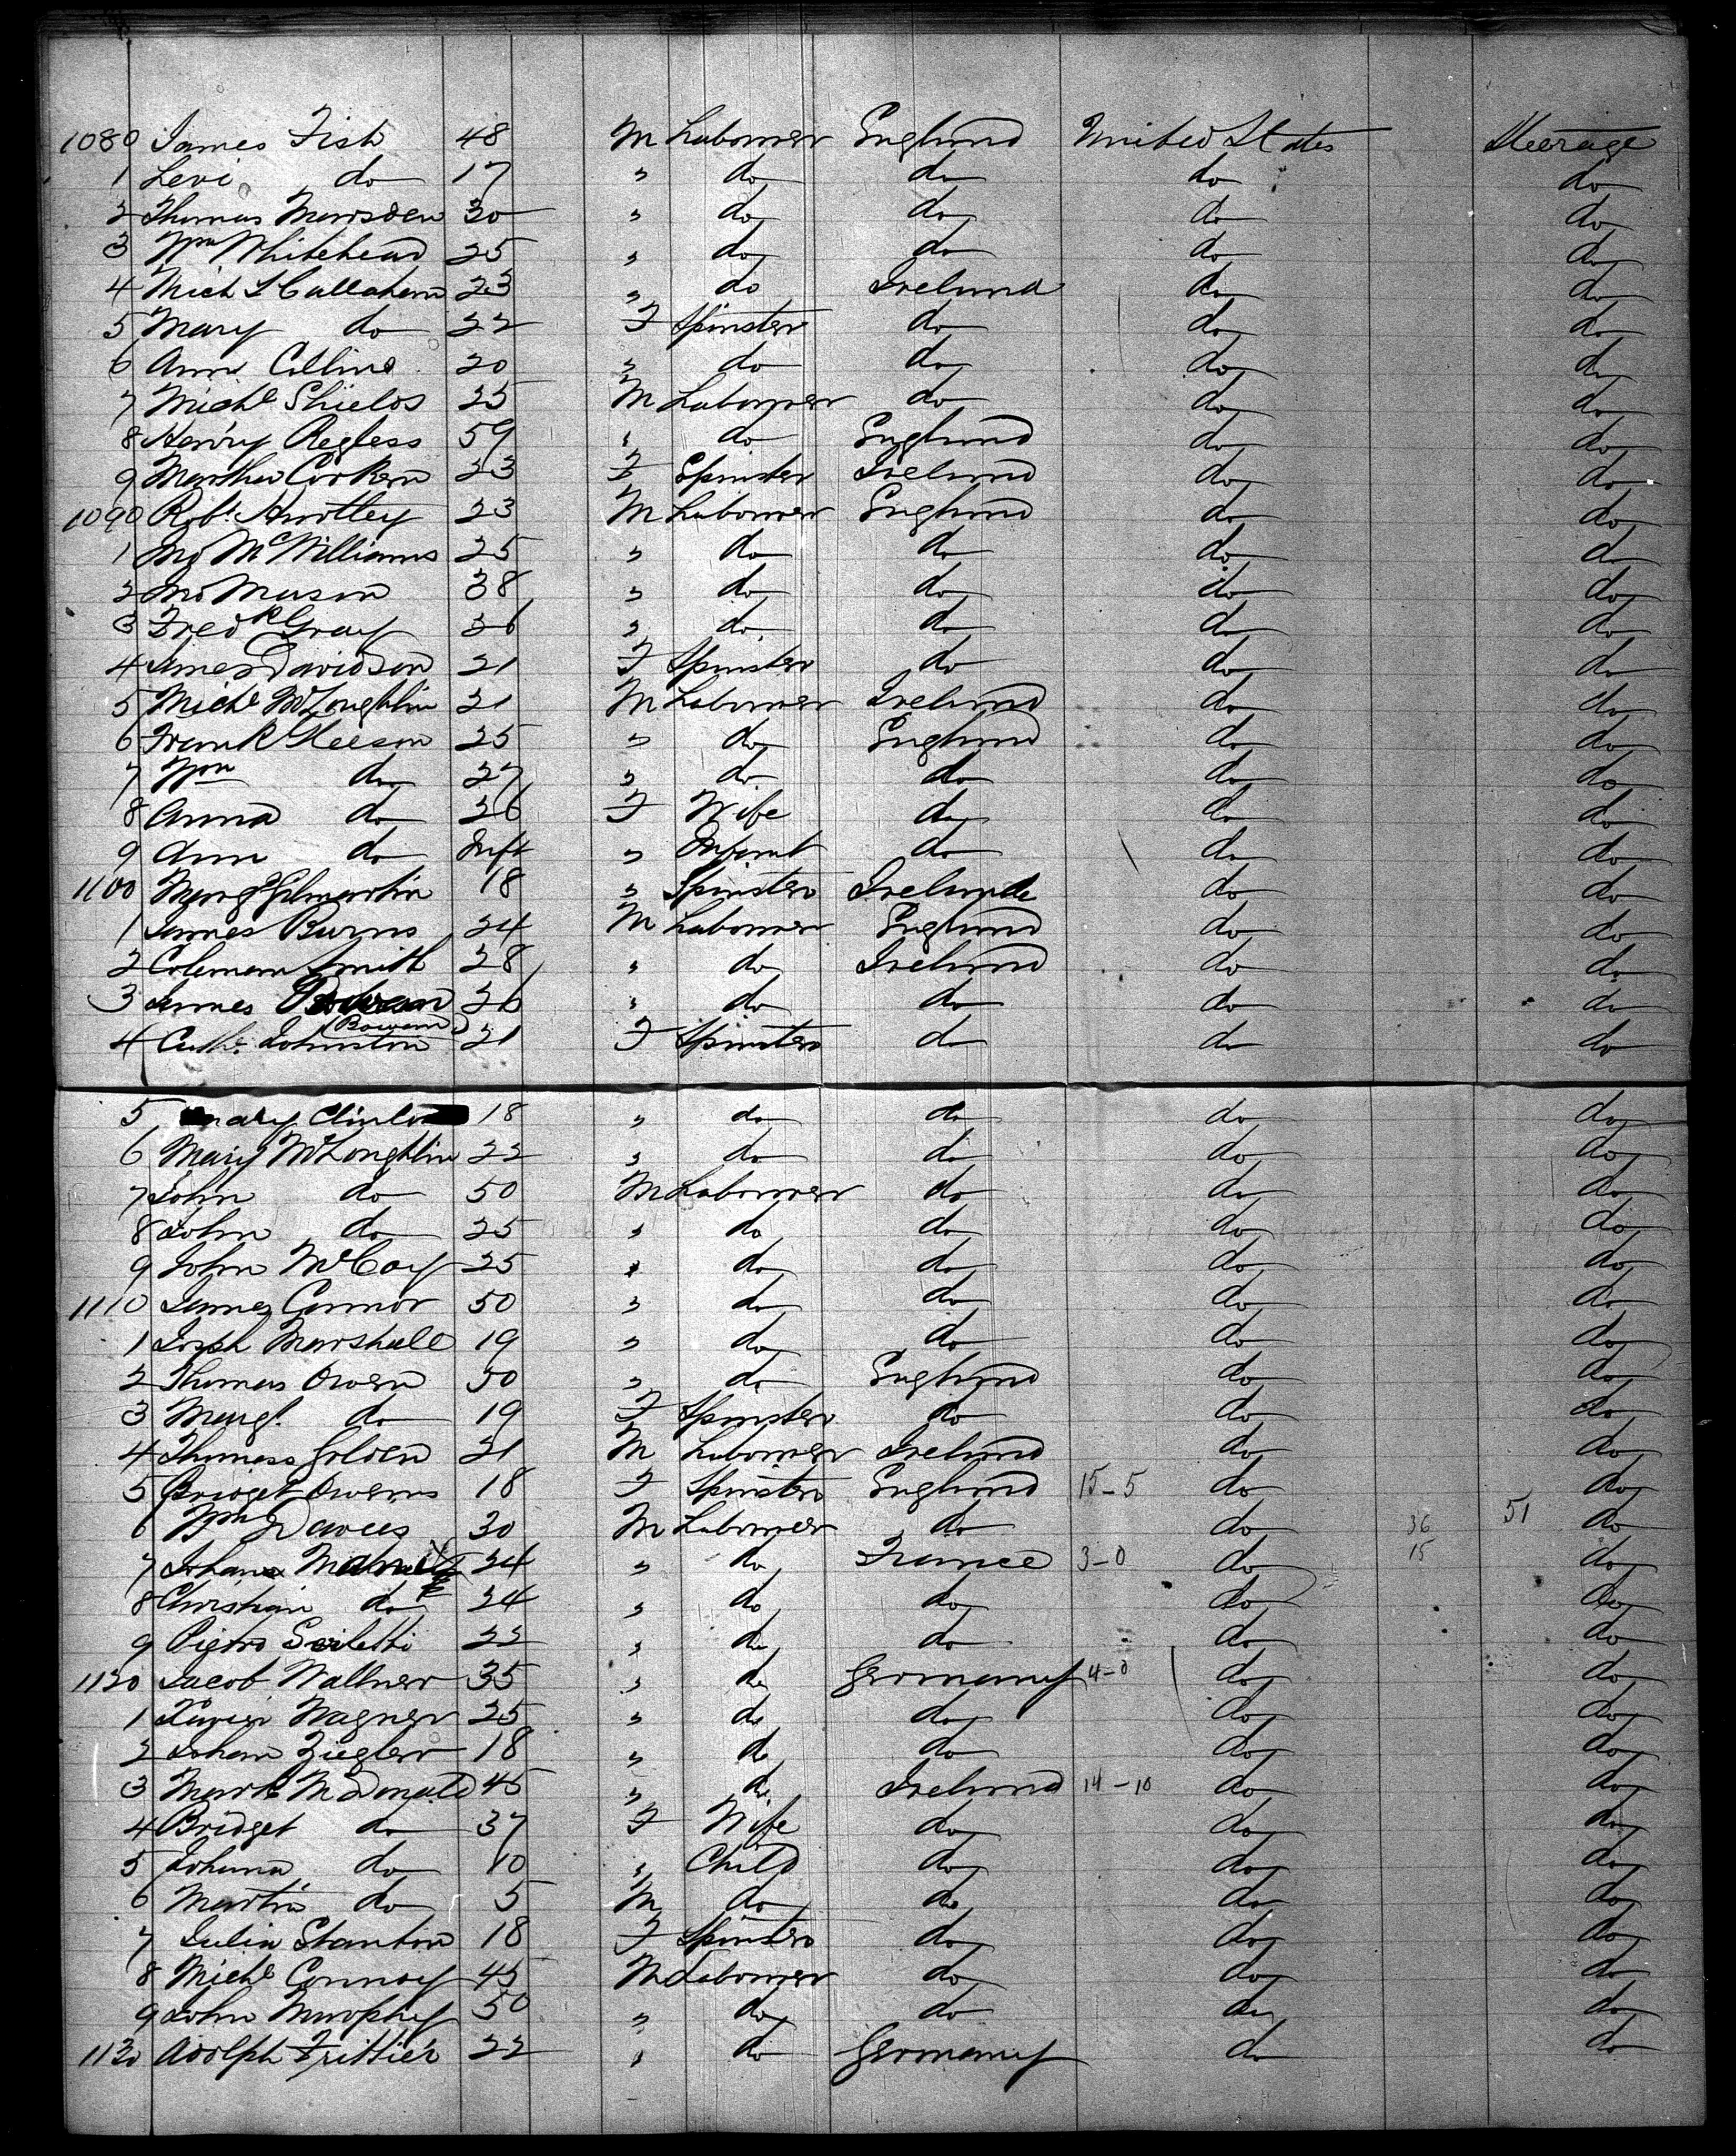 1080 James Fish 48 M Labourer England United States Steerage
1 Levi do 17 " do do do do
2 Thomas Marsden 30 " do do do do
3 Wm Whitehead 25 " do do do do
4 Mich l Callahan 23 " do Ireland do do
5 Mary do 22 F Spinster do do do
6 Ann Collins 20 " do do do do
7 Michl Shields 25 M Labourer do do do
8 Henry Regless 59 " do England do do
9 Martha 23 F Spinster Ireland do do
1090 Robt Huntley 23 M Labourer England do do
1 McWilliams 25 " do do do do
2 Mason 38 " do do do do
3 Fredk Gray 26 " do do do do
4 Davidson 21 F Spinster do do do
5 Michl McLoughlin 21 M Labourer Ireland do do
6 Frank Gleeson 25 " do England do do
7 Wm do 27 " do do do do
8 Anna do 26 F Wife do do do
9 Ann do Inft " Infant do do do
1100 Margt Gilmartin 18 " Spinster Ireland do do
1 James Burns 24 M Labourer England do do
2 Coleman Smith 28 " do Ireland do do
3 James 26 " do do do do
(Bowam)
4 Cathe Johnston 21 F Spinster do do do
5 Mary 18 " do do do do
6 Mary McLoughlin 22 " do do do do
7 John do 50 M Labourer do do do
8 John do 25 " do do do do
9 John McCoy 25 " do do do do
1110 James Connor 50 " do do do do
1 Josph Marshall 19 " do do do do
2 Thomas Owen 50 " do England do do
3 Margt do 19 F Spinster do do do
4 Thomas Golden 21 M Labourer Ireland do do
5 Bridget Owens 18 F Spinster England 15-5 do do
6 Wm Davies 30 M Labourer do do 36 51 do
7 Johann 24 " do France 3-0 do 15 do
8 Christian do 24 " do do do do
9 Pietro 22 " do do do do
1120 Jacob Wallner 35 " do Germany 4-0 do do
1 Xavier Wagner 25 " do do do do
2 Johann Ziegler 18 " do do do do
3 Mark McDonald 45 " do Ireland 14-10 do do
4 Bridget do 37 F Wife do do do
5 Johana do 10 " Child do do do
6 Martin do 5 M do do do do
7 Julia Stanton 18 F Spinster do do do
8 Michl Conroy 45 M Labourer do do do
9 John Murophy 50 " do do do do
1130 Adolph 22 " do Germany do do